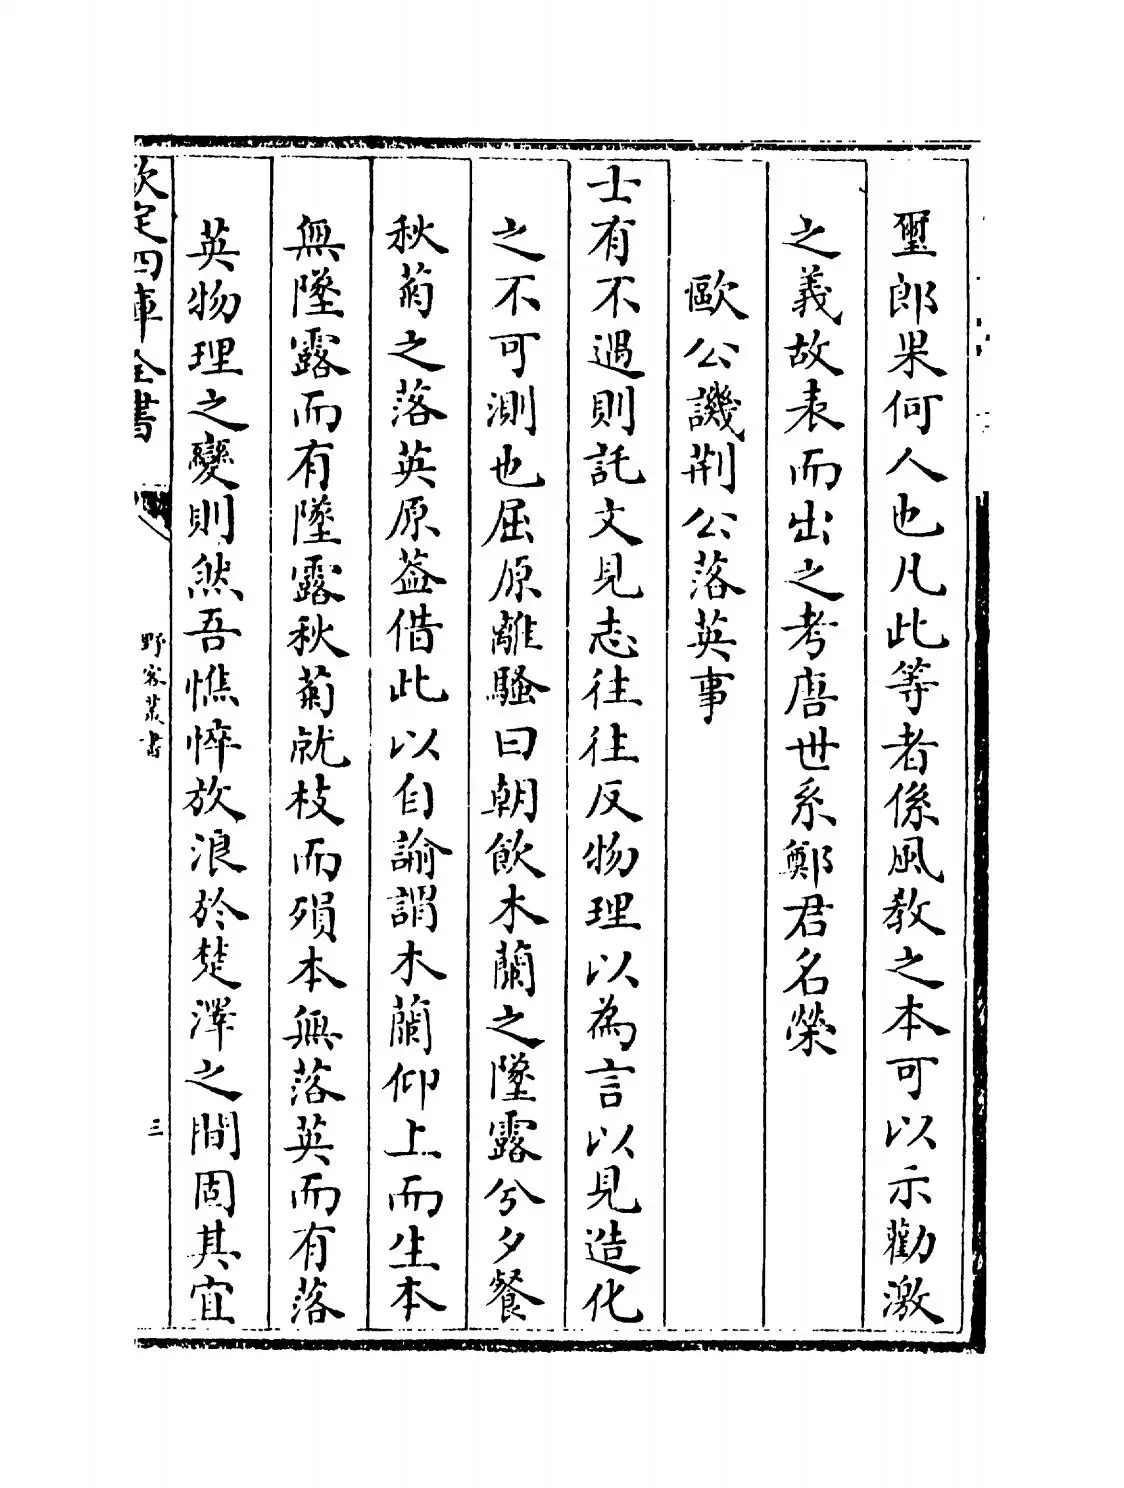 璽郎果何人也凡此等者係風教之本可以示勸激
之義故表而出之考唐世系鄭君名榮
歐公譏荆公落英事
士有不遇則託文見志往往反物理以為言以見造化
之不可測也屈原離騷曰朝飲木蘭之墬露兮夕餐
秋菊之落英原葢借此以自諭謂木蘭仰上而生本
無墬露而有墬露秋菊就枝而殞本無落英而有落
英物理之變則然吾憔悴放浪於楚澤之間固其宜
欽定四庫全書
野客叢書
三